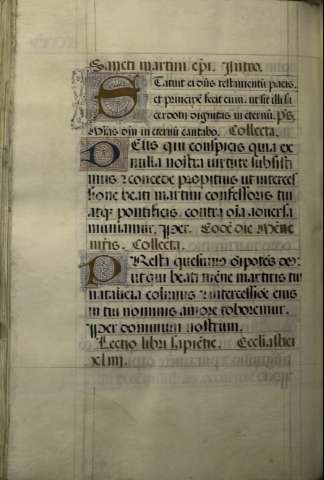 Sancti martini epi. Intro.
Statuit ei dñs testamentũ pacis,
et principẽ fecit eum, ut sit illi sa
cerdotij dignitas in eternũ. ps.
Mĩas dñi in eternũ cantabo. Collecta.
Deus qui conspicis quia ex
nulla nostra virtute subsisti
mus: concede propitius ut interces
sione beati martini confessoris tui
atq; pontificis, contra oĩa adversa
muniamur. Per. Eodẽ die Mẽne
mr̃is. Collecta.
Presta quesumus oĩpotẽs deus
ut qui beati mẽne martiris tui
natalicia colimus, intercessiõe eius
in tui nominis amore roboremur.
Per dominum nostrum.
Lectio libri sapiẽtie. Ecclesiastici
xliiij.